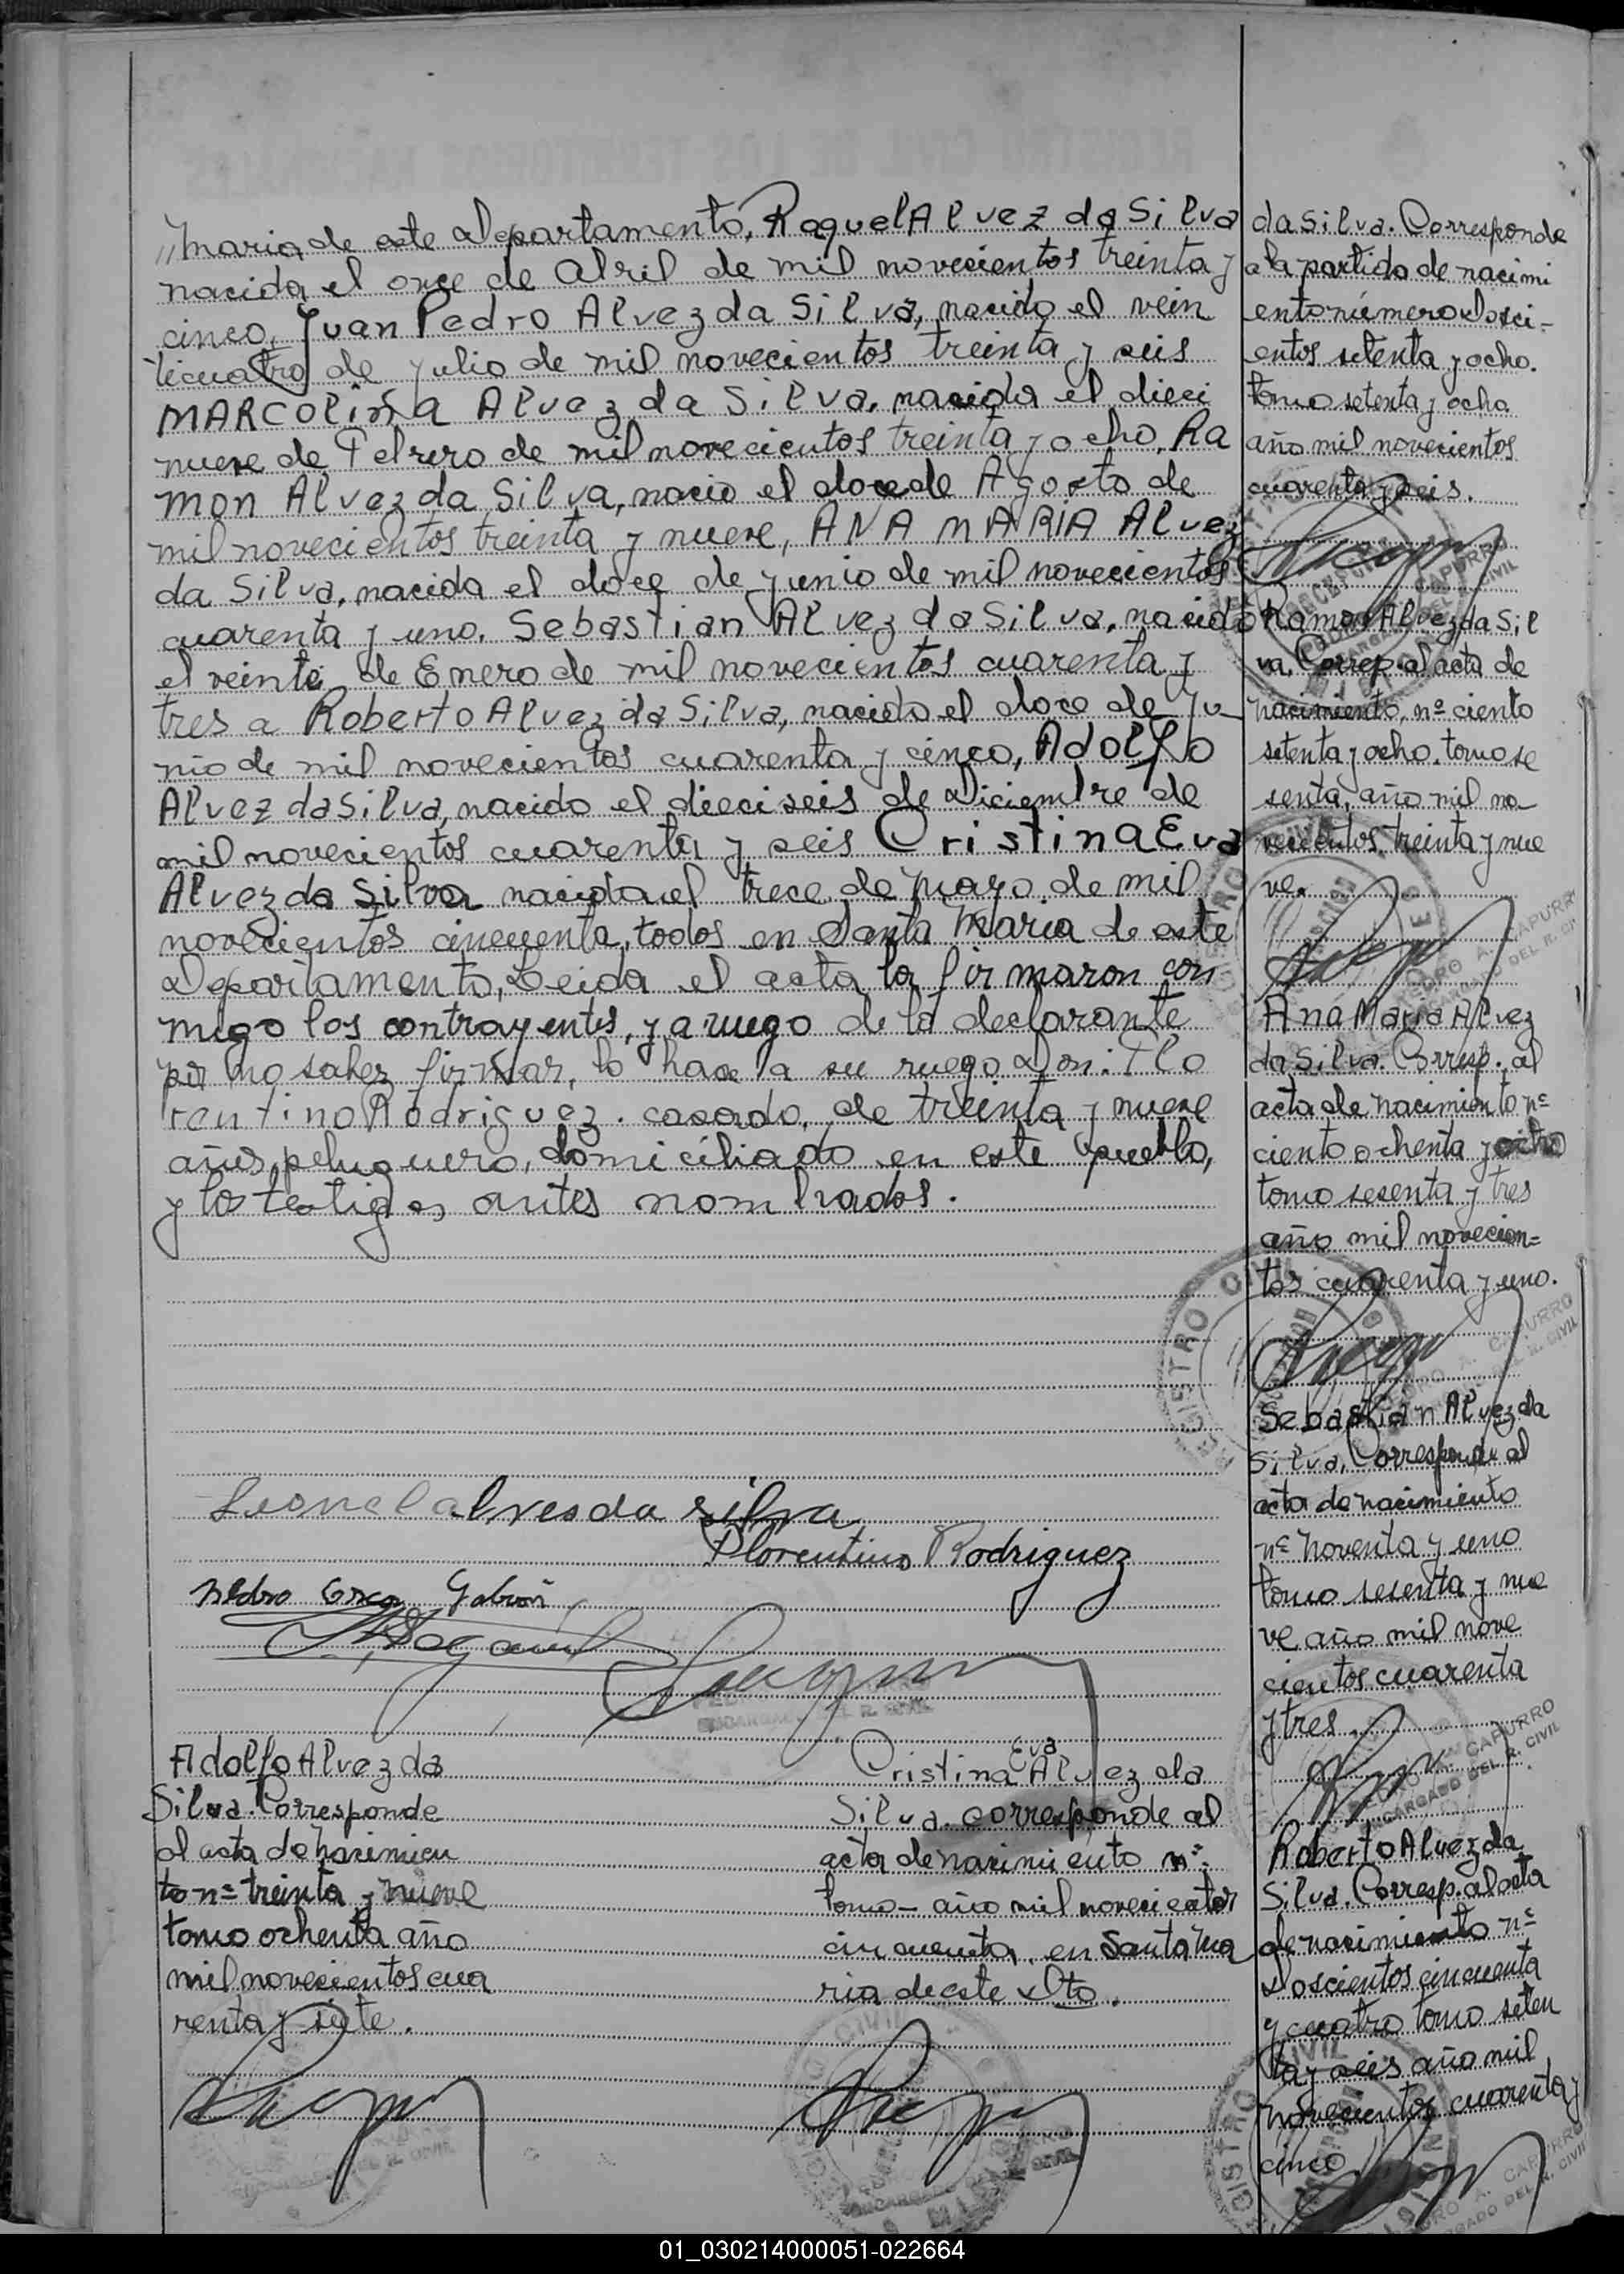 "Maria de este Departamento, Raquel Alvez da Silva
nacida el once de Abril de mil novecientos treinta y
cinco, Juan Pedro Alvez da Silva, nacido el vein
ticuatro de Julio de mil novecientos treinta y seis
MARCOLIÑA Alvez da Silva, nacida el dieci
nueve de Febrero de mil novecientos treinta y ocho, Ra
mon Alvez da Silva, nacio el doce de Agosto de
mil novecientos treinta y nueve, ANA MARIA Alvez
da Silva, nacida el doce de Junio de mil novecientos
cuarenta y uno. Sebastian Alvez da Silva, nacido
el veinte de Enero de mil novecientos cuarenta y
tres a Roberto Alvez da Silva, nacido el doce de Ju-
nio de mil novecientos cuarenta y cinco, Adolfo
Alvez da Silva, nacido el dieciseis de Diciembre de
mil novecientos cuarenta y seis Cristina Eva
Alvez da Silva nacida el trece de Mayo de mil
novecientos cincuenta, todos en Santa Maria de este
Departamento, Leida el acta la firmaron con
migo los contrayentes, y a ruego de la declarante
por no saber firmar, lo hace a su ruego Don: Flo
rentino Rodriguez. casado, de treinta y nueve
años, peluquero, domiciliado en este pueblo,
y los testigos antes nombrados.
Leonel alves da silva
Florentino Rodriguez
Pedro
PEDRO A. CAPURRO
ENCARGADO DEL R. CIVIL
Adolfo Alvez da
Silva. Corresponde
al acta de Nacimien
to nº treinta y nueve
tomo ochenta año
mil novecientos cua
renta y siete.
Cristina Eva Alvez da
Silva. corresponde al
acta de nacimiento nº-
tomo - año mil novecientos
cincuenta en Santa Ma
ria de este Dto.
da Silva. Corresponde
a la partida de nacimi
ento número Dosci-
entos setenta y ocho.
tomo setenta y ocho
año mil novecientos
cuarenta y seis.
Ramon Alvez da Sil
va. Corresp. al acta de
nacimiento, nº ciento
setenta y ocho. tomo se
senta, año mil no-
vecientos, treinta y nue
ve.
PEDRO A. CAPURRO
ENCARGADO DEL R. CIVIL
Ana Maria Alvez
da Silva. Corresp. al
acta de nacimiento nº
ciento ochenta y ocho
tomo sesenta y tres
año mil novecien=
tos cuarenta y uno.
REGISTRO CIVIL
PEDRO A. CAPURRO
ENCARGADO DEL R. CIVIL
Sebastian Alvez da
Silva. Corresponde al
acta de nacimiento
nº noventa y uno
tomo sesenta y nue
ve año mil nove
cientos cuarenta
y tres.
PEDRO A. CAPURRO
ENCARGADO DEL R. CIVIL
Roberto Alvez da
Silva. Corresp. al acta
de nacimiento nº
Doscientos cincuenta
y cuatro tomo seten
ta y seis año mil
novecientos cuarenta y
cinco
PEDRO A. CAPURRO
ENCARGADO DEL R. CIVIL
01_030214000051-022664